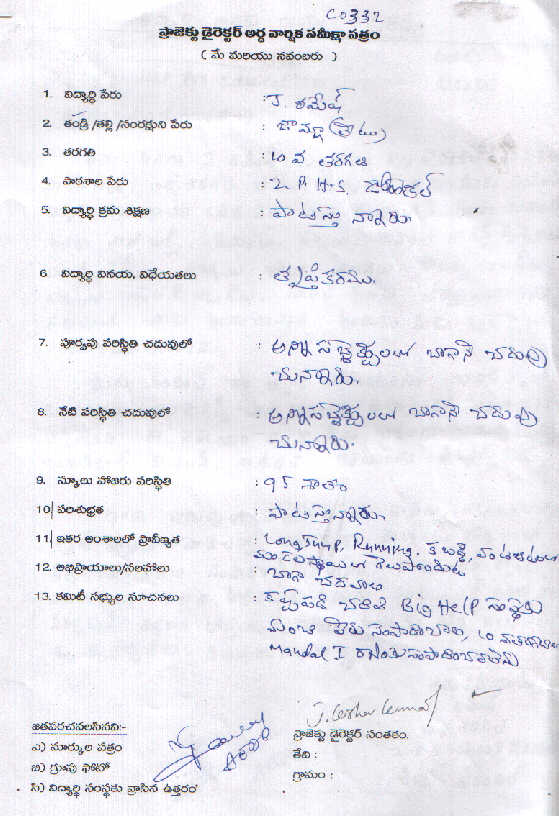 C0332
ప్రాజెక్టు డైరెక్టర్ అర్ధ వార్షిక సమీక్షా పత్రం
( మే మరియు నవంబరు )
1. విద్యార్థి పేరు : J. రమేష్
2. తండ్రి /తల్లి /సంరక్షుని పేరు :
3. తరగతి : 10 వ తరగతి
4. పాఠశాల పేరు : Z P H S.
5. విద్యార్థి క్రమ శిక్షణ : పాటిస్తు న్నారు.
6 విద్యార్థి వినయ, విధేయతలు : తృప్తికరము.
7. పూర్వపు పరిస్థితి చదువులో : అన్ని సబ్జెక్టులలో బాగానే చదువు
చున్నారు.
8. నేటి పరిస్థితి చదువులో : అన్ని సబ్జెక్టులలో బాగానే చదువు
చున్నారు.
9. స్కూలు హాజరు పరిస్థితి : 95 శాతం
10| పరిశుభ్రత : పాటిస్తున్నారు.
11| ఇతర అంశాలలో ప్రావీణ్యత : Long Jump, Running, కబడ్డి,
12. అభిప్రాయాలు/సలహాలు : బాగా చదవాలి
13. కమిటీ సభ్యుల సూచనలు : కష్టపడి చదివి Big Help సంస్థకు
మంచి పేరు సంపాదించాలి, 10 వ తరగతిలో
Mandal I
జతపరచవలసినవి:-
ఎ) మార్కుల పత్రం
బి) గ్రూపు ఫోటో
సి) విద్యార్థి సంస్థకు వ్రాసిన ఉత్తరం
ప్రాజెక్టు డైరెక్టర్ సంతకం.
తేది :
గ్రామం :